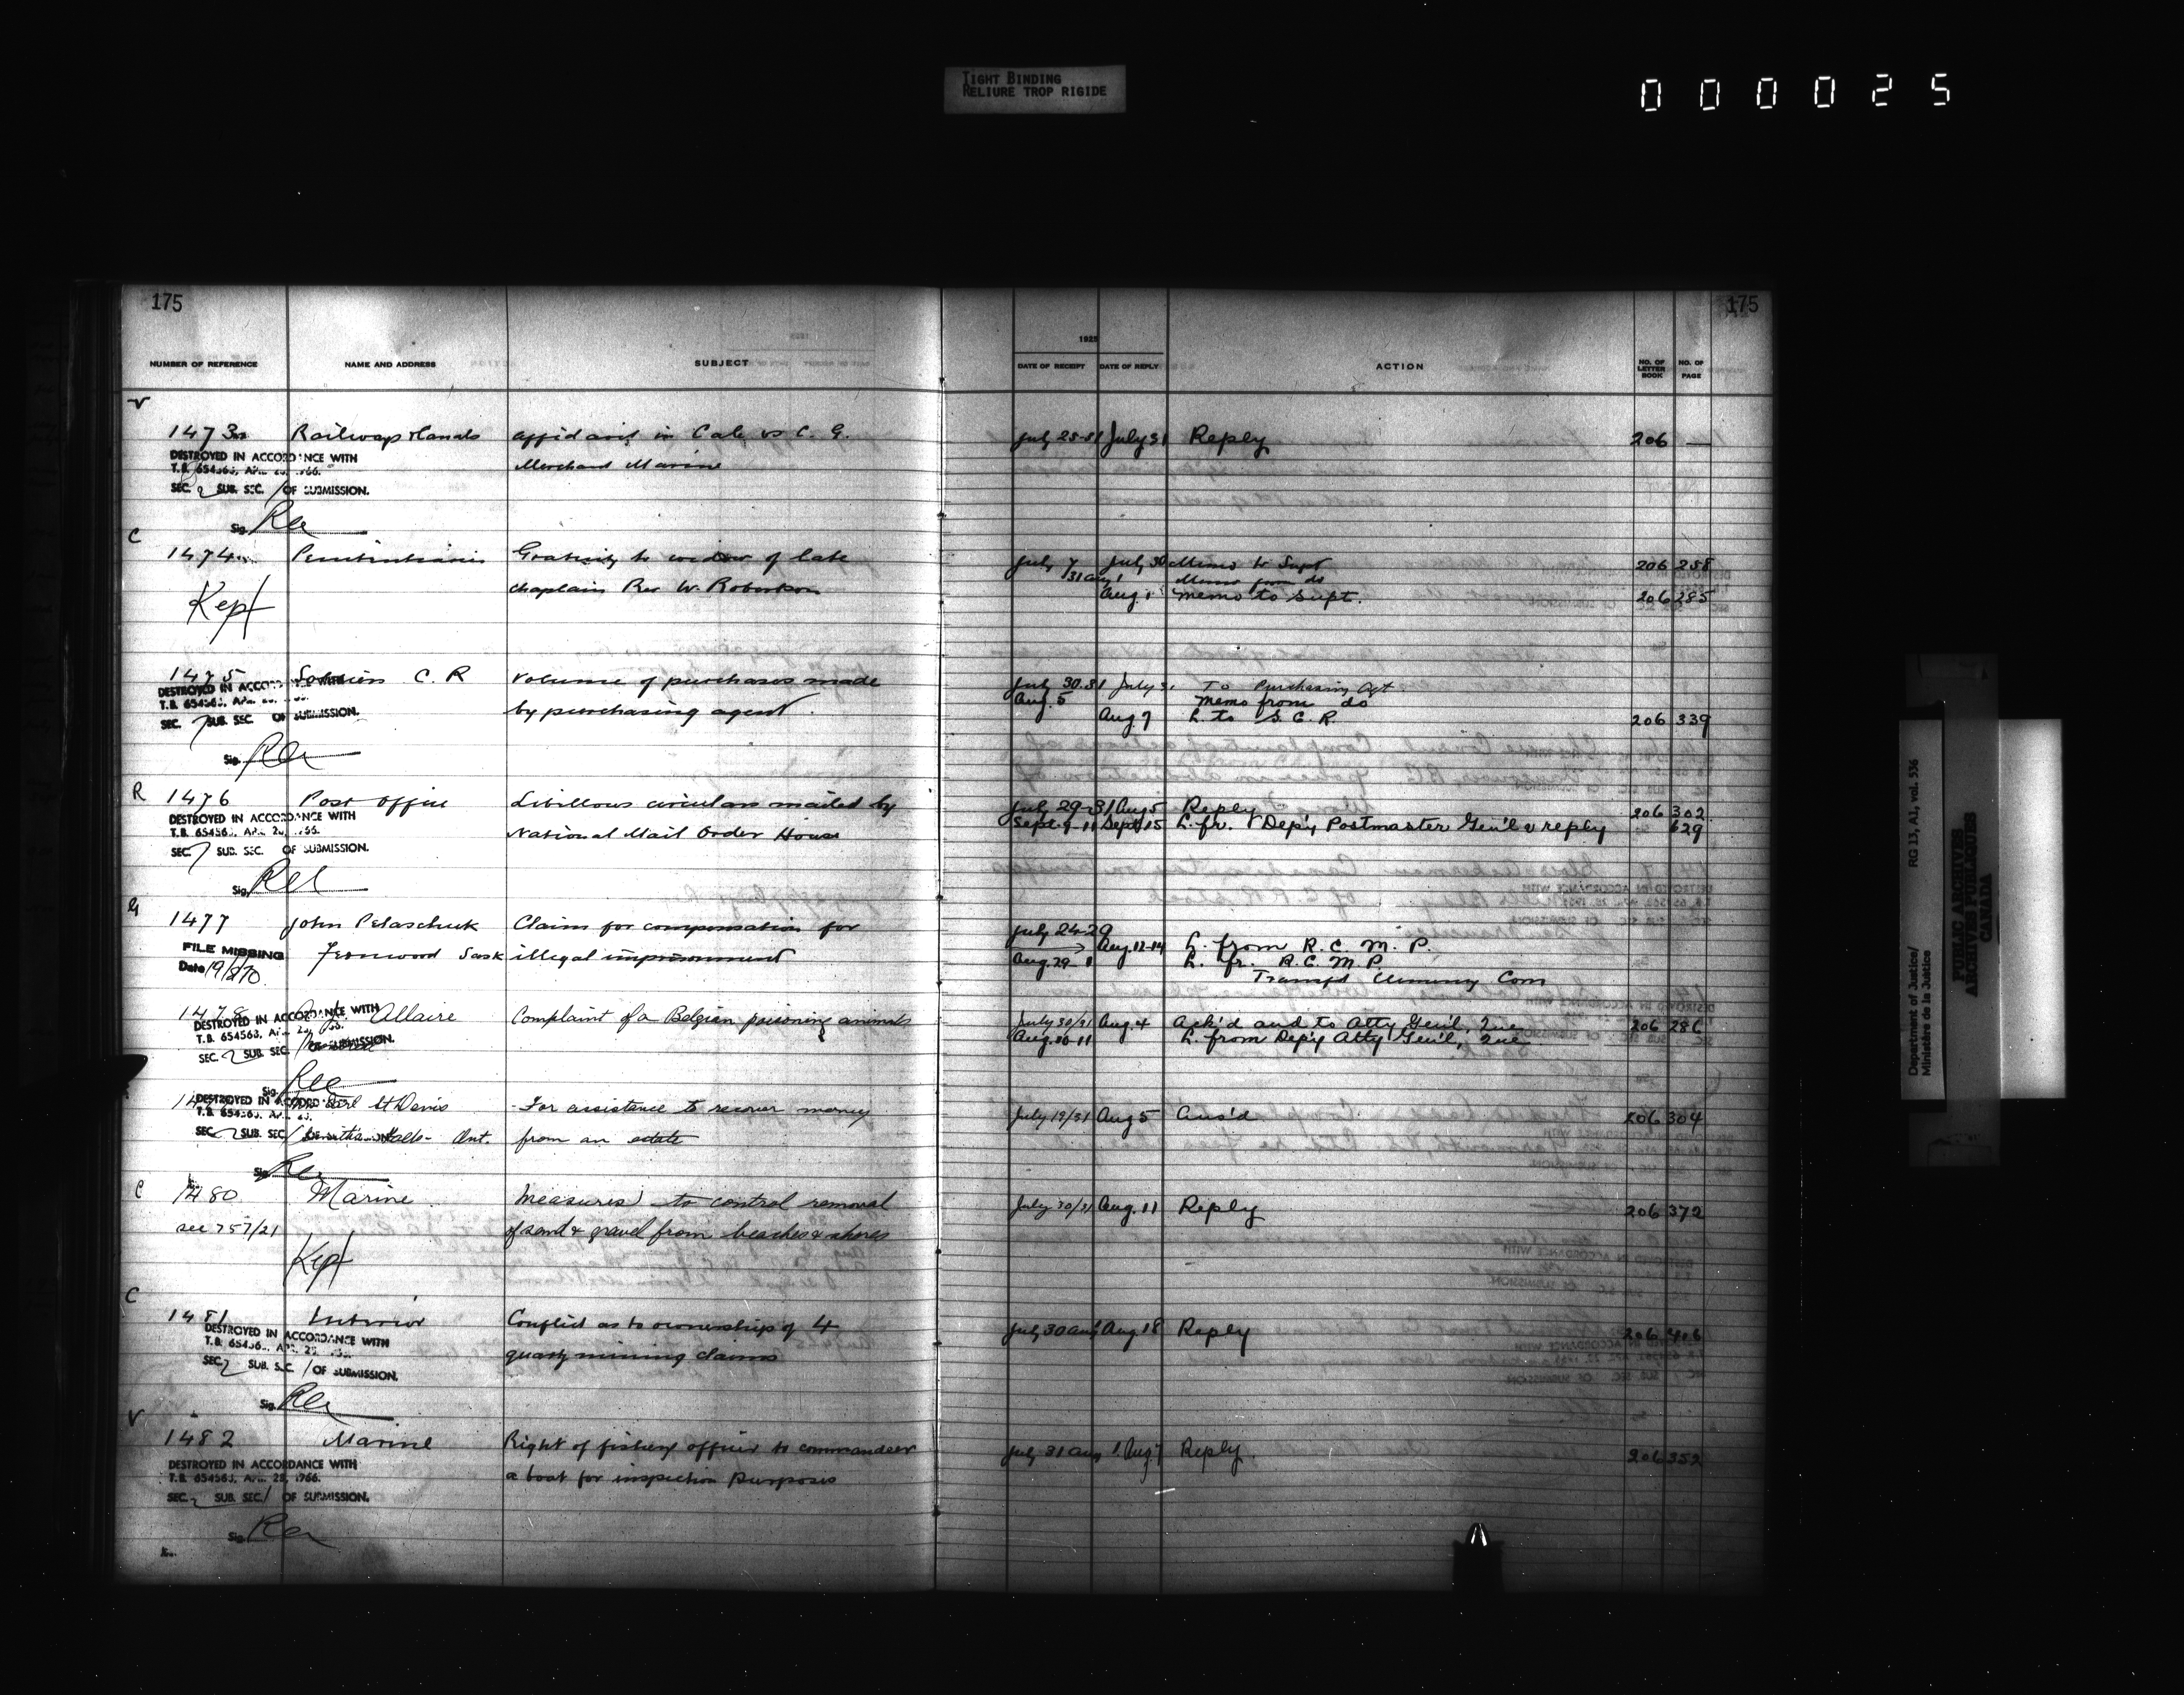 TIGHT BINDING
RELIURE TROP RIGIDE
000025
175
175
NUMBER OF REFERENCE NAME AND ADDRESS SUBJECT
1925
DATE OF RECEIPT DATE OF REPLY ACTION NO. OF LETTER BOOK NO. OF PAGE
V
1473 Railways & Canals affidavit in Cale vs C. G. July 31 Reply 206 —
Merchant Marine
DESTROYED IN ACCORDANCE WITH
T.B. 654563,
SEC. 2 SUB. SEC. / OF SUBMISSION.
Sig.
C
1474 Penitentiaries Gratuity to widow of late July 7 July 30 Memo to Supt 206 258
31 Aug 1 Memo from do
chaplain Rev W. Robertson Aug. 1 Memo to Supt. 206 285
Kept
1475 C. R Volume of purchases made July 30.31 July 31 To Purchasing Agt
Aug. 5 Memo from do
by purchasing agent. Aug 7 L. to S. C. R. 206 339
DESTROYED IN ACCORDANCE WITH
T.B. 654563,
SEC. 7 SUB. SEC. OF SUBMISSION.
Sig.
R
1476 Post Office Libillous circulars mailed by July 29-31 Aug 5 Reply 206 302
National Mail Order House Sept. 9-11 Sept 15 L. fr. Dep'y Postmaster Gen'l & reply 629
DESTROYED IN ACCORDANCE WITH
T.B. 654563,
SEC. 7 SUB. SEC. OF SUBMISSION.
Sig.
G
1477 John Pelaschuk Claim for compensation for July 24-29
Aug. 12-14 L. from R. C. M. P.
Fernwood Sask illegal imprisonment Aug. 29 L. fr. R. C. M. P.
FILE MISSING
Date 19/8/70.
1478 Allaire Complaint of a Belgian poisoning animals July 30/31 Aug. 4 Ack'd and to Atty Gen'l, Que 206 286
Aug. 10-11 L. from Dep'y Atty Gen'l, Que
DESTROYED IN ACCORDANCE WITH
T.B. 654563,
SEC. 2 SUB. SEC. OF SUBMISSION.
Sig.
St Denis For assistance to recover money July 19/31 Aug 5 Ans'd 206 304
Ont. from an estate
DESTROYED IN ACCORDANCE
T.B. 654563,
SEC. 2 SUB. SEC.
Sig.
C
1480 Marine Measures to control removal July 30/31 Aug. 11 Reply 206 372
see 757/21 of sand & gravel from beaches & shores
Kept
C
1481 Interior Conflict as to ownership of 4 July 30 Aug 18 Reply 206 406
quartz mining claims
DESTROYED IN ACCORDANCE WITH
T.B. 654563,
SEC. 2 SUB. SEC. / OF SUBMISSION.
Sig.
V
1482 Marine Right of fishery officer to commandeer July 31 Aug 1 Aug 7 Reply. 206 352
a boat for inspection purposes
DESTROYED IN ACCORDANCE WITH
T.B. 654563, 1966.
SEC. 2 SUB. SEC. / OF SUBMISSION.
Sig.
Department of Justice/ RG 13, A1, vol. 536
Ministère de la Justice
PUBLIC ARCHIVES
ARCHIVES PUBLIQUES
CANADA